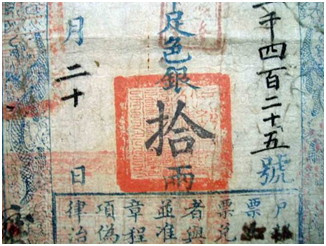 千四百二十五號
足色銀拾兩
月二十日
戶
票
票兌
者與
並准
章程
項偽
律治